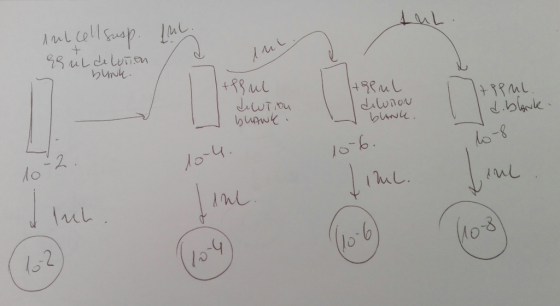 1mL cell susp.
+
99mL dilution
blank
10-2.
1mL.
10-2
1mL.
+99mL
dilution
blank.
10-4.
1mL.
10-4
1mL.
+99mL
dilution
blank.
10-6.
1mL.
10-6
1mL.
+99mL
d.blank.
10-8
1mL.
10-8